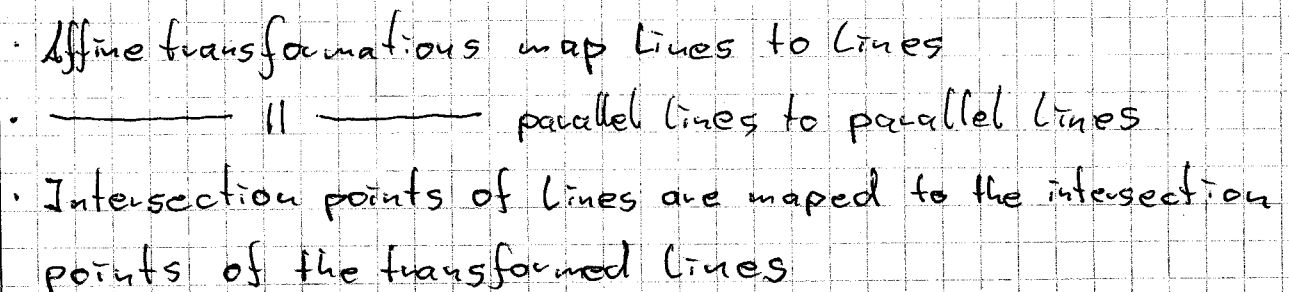 · Affine transformations map lines to lines
· ——— || ——— parallel lines to parallel lines
· Intersection points of lines are maped to the intersection
points of the transformed lines